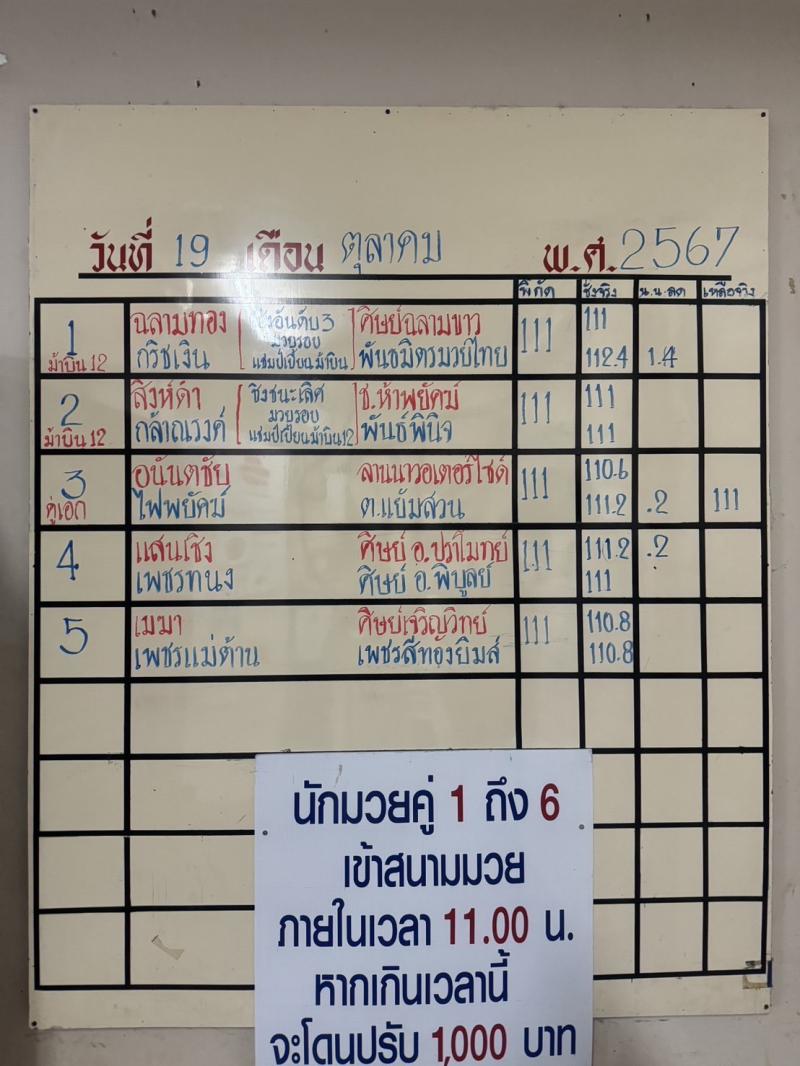 วันที่ 19 เดือน ตุลาคม พ.ศ. 2567
พิกัด ชั่งจริง น.น.ลด เหลือจริง
1 ฉลามทอง ชิงอันดับ 3 ศิษย์ฉลามขาว 111 111
มวยรอบ
ม้าบิน 12 กวิชเงิน แชมป์เปี้ยนม้าบิน พันธมิตรมวยไทย 112.4 1.4
2 สิงห์ดำ ชิงชนะเลิศ ช.ห้าพยัคฆ์ 111 111
มวยรอบ
ม้าบิน 12 กล้าณรงค์ แชมป์เปี้ยนม้าบิน 12 พันธ์พินิจ 111
3 อนันตชัย ลานนาวอเตอร์ไซด์ 111 110.6
คู่เอก ไฟพยัคฆ์ ต.แย้มสวน 111.2 .2 111
4 แสนเชิง ศิษย์ อ.ปราโมทย์ 111 111.2 .2
เพชรทนง ศิษย์ อ.พิบูลย์ 111
5 เมฆา ศิษย์เจริญวิทย์ 111 110.8
เพชรแม่ต้าน เพชรสีทองยิมส์ 110.8
นักมวยคู่ 1 ถึง 6
เข้าสนามมวย
ภายในเวลา 11.00 น.
หากเกินเวลานี้
จะโดนปรับ 1,000 บาท